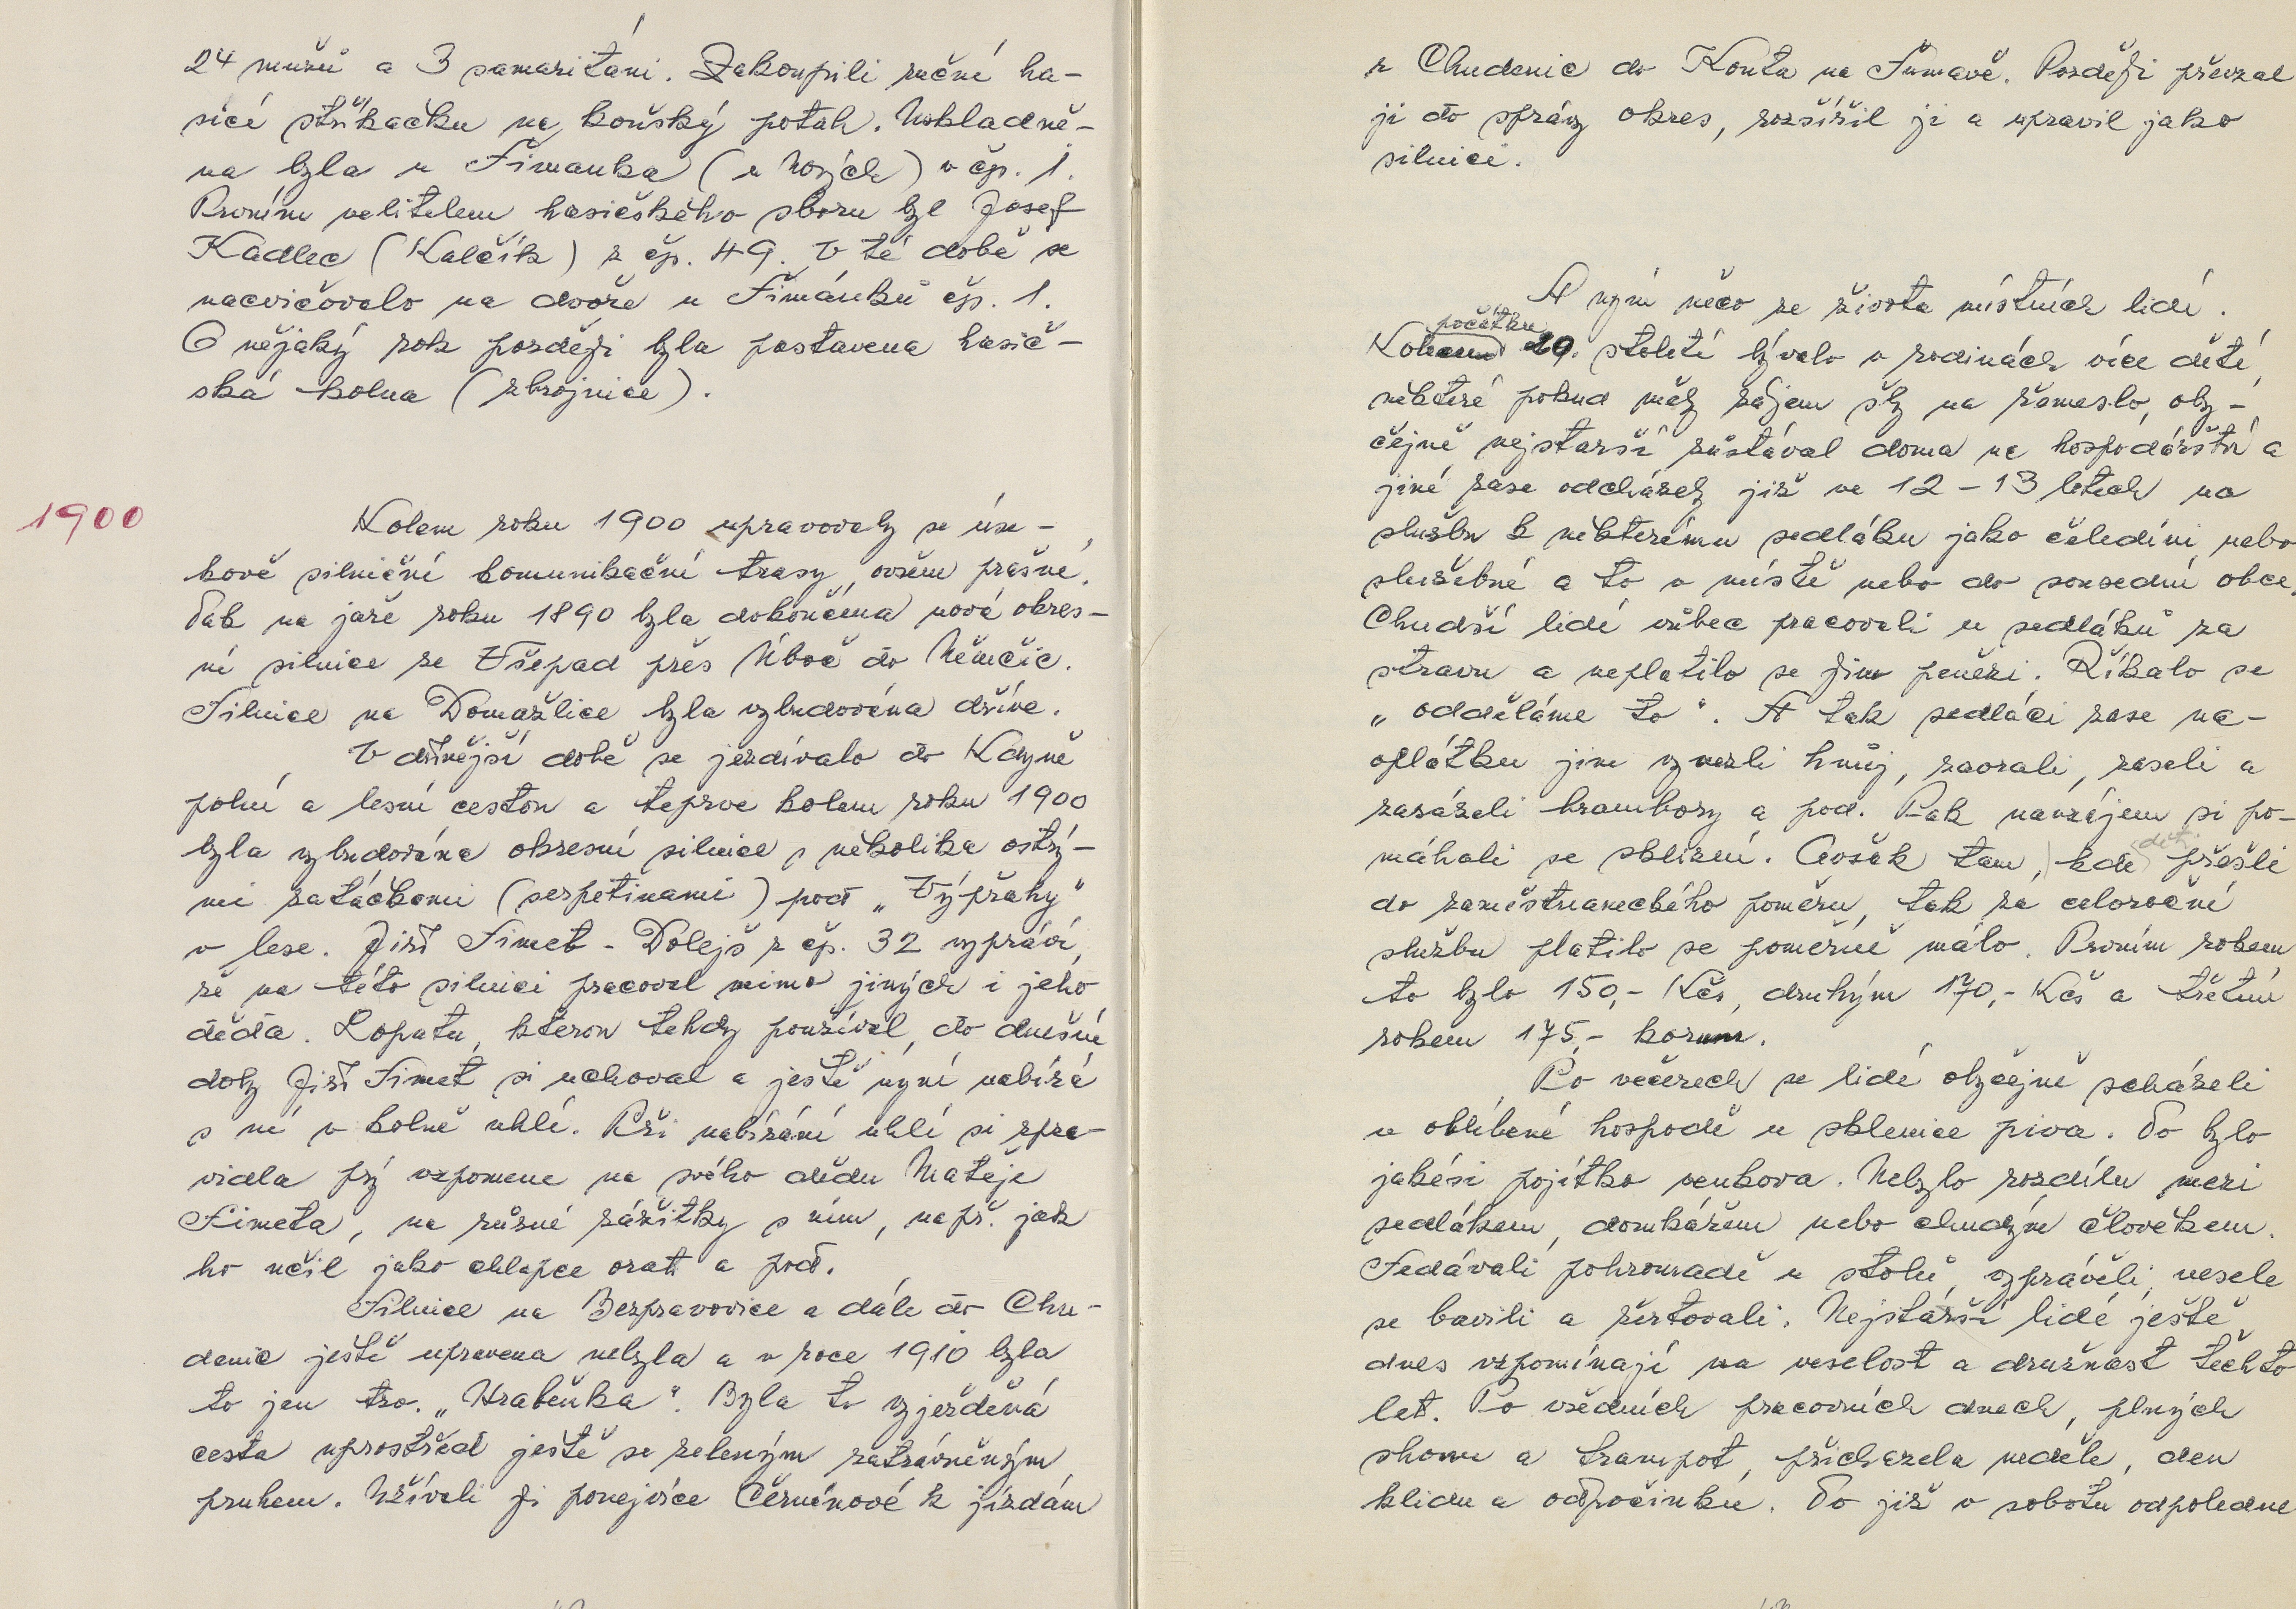 24 mužů a 3 samaritáni. Zakoupili ruční ha-
sicí stříkačku na koňský potah. Uskladně-
na byla u Šimanka (u Nových) v čp. 1.
Prvním velitelem hasičského sboru byl Josef
Kadlec (Kalčík) z čp. 49. V té době se
nacvičovalo na dvoře u Šimánků čp. 1.
O nějaký rok později byla postavena hasič-
ská kolna (zbrojnice).
1900
Kolem roku 1900 upravovaly se úse-
kově silniční komunikační trasy, ovšem prašné.
Tak na jaře roku 1890 byla dokončena nová okres-
ní silnice ze Všepad přes Úboč do Němčic.
Silnice na Domažlice byla vybudována dříve.
V dřívější době se jezdívalo do Kdyně
polní a lesní cestou a teprve kolem roku 1900
byla vybudována okresní silnice s několika ostrý-
mi zatáčkami (serpetinami) pod „Výpřahy"
v lese. Jiří Šimet - Dolejš z čp. 32 vypráví,
že na této silnici pracoval mimo jiných i jeho
děda. Lopatu, kterou tehdy používal, do dnešní
doby Jiří Šimet si uchoval a ještě nyní nabírá
s ní v kolně uhlí. Při nabírání uhlí si zpra-
vidla prý vzpomene na svého dědu Matěje
Šimeta, na různé zážitky s ním, např. jak
ho učil jako chlapce orati a pod.
Silnice na Bezpravovice a dále do Chu-
denic ještě upravena nebyla a v roce 1910 byla
to jen tzv. „Hraběnka". Byla to vyježděná
cesta uprostřed ještě se zeleným zatrávněným
pruhem. Užívali ji ponejvíce Černínové k jízdám
z Chudenic do Kouta na Šumavě. Později převzal
ji do správy okres, rozšířil ji a upravil jako
silnici.
A nyní něco ze života místních lidí.
počátku
Kolem 20. století bývalo v rodinách více dětí,
některé pokud měly zájem šly na řemeslo, oby-
čejně nejstarší zůstával doma na hospodářství a
jiné zase odcházely již ve 12 - 13 letech na
službu k některému sedláku jako čeledíni nebo
služebné a to v místě nebo do sousední obce.
Chudší lidé vůbec pracovali u sedláků za
stravu a neplatilo se jim penězi. Říkalo se
„odděláme to". A tak sedláci zase na-
oplátku jim vyvezli hnůj, zaorali, zaseli a
zasázeli brambory a pod. Pak navzájem si po-
máhali se sklizní. Avšak tam, kde (děti) přešli
do zaměstnaneckého poměru, tak za celoroční
službu platilo se poměrně málo. Prvním rokem
to bylo 150,- Kčs, druhým 170,- Kčs a třetím
rokem 175,- korun.
Po večerech se lidé obyčejně scházeli
v oblíbené hospodě u sklenice piva. To bylo
jakési pojítko venkova. Nebylo rozdílu mezi
sedlákem, domkářem nebo chudým člověkem.
Sedávali pohromadě u stolů, vyprávěli, vesele
se bavili a žertovali. Nejstarší lidé ještě
dnes vzpomínají na veselost a družnost těchto
let. Po všedních pracovních dnech, plných
shonu a trampot, přicházela neděle, den
klidu a odpočinku. To již v sobotu odpoledne